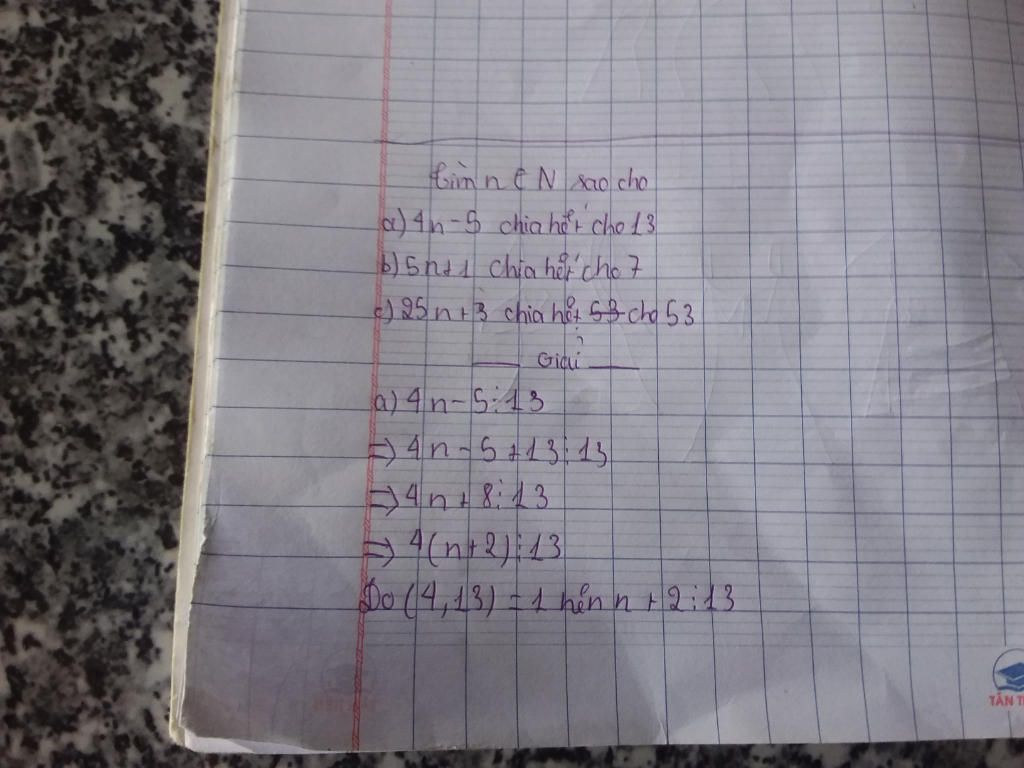 Tìm n ∈ N sao cho
a) 4n - 5 chia hết cho 13
b) 5n + 1 chia hết cho 7
c) 25n + 3 chia hết 53 cho 53
Giải
a) 4n - 5 ⋮ 13
=> 4n - 5 + 13 ⋮ 13
=> 4n + 8 ⋮ 13
=> 4(n+2) ⋮ 13
Do (4,13) = 1 nên n + 2 ⋮ 13
TÂN T